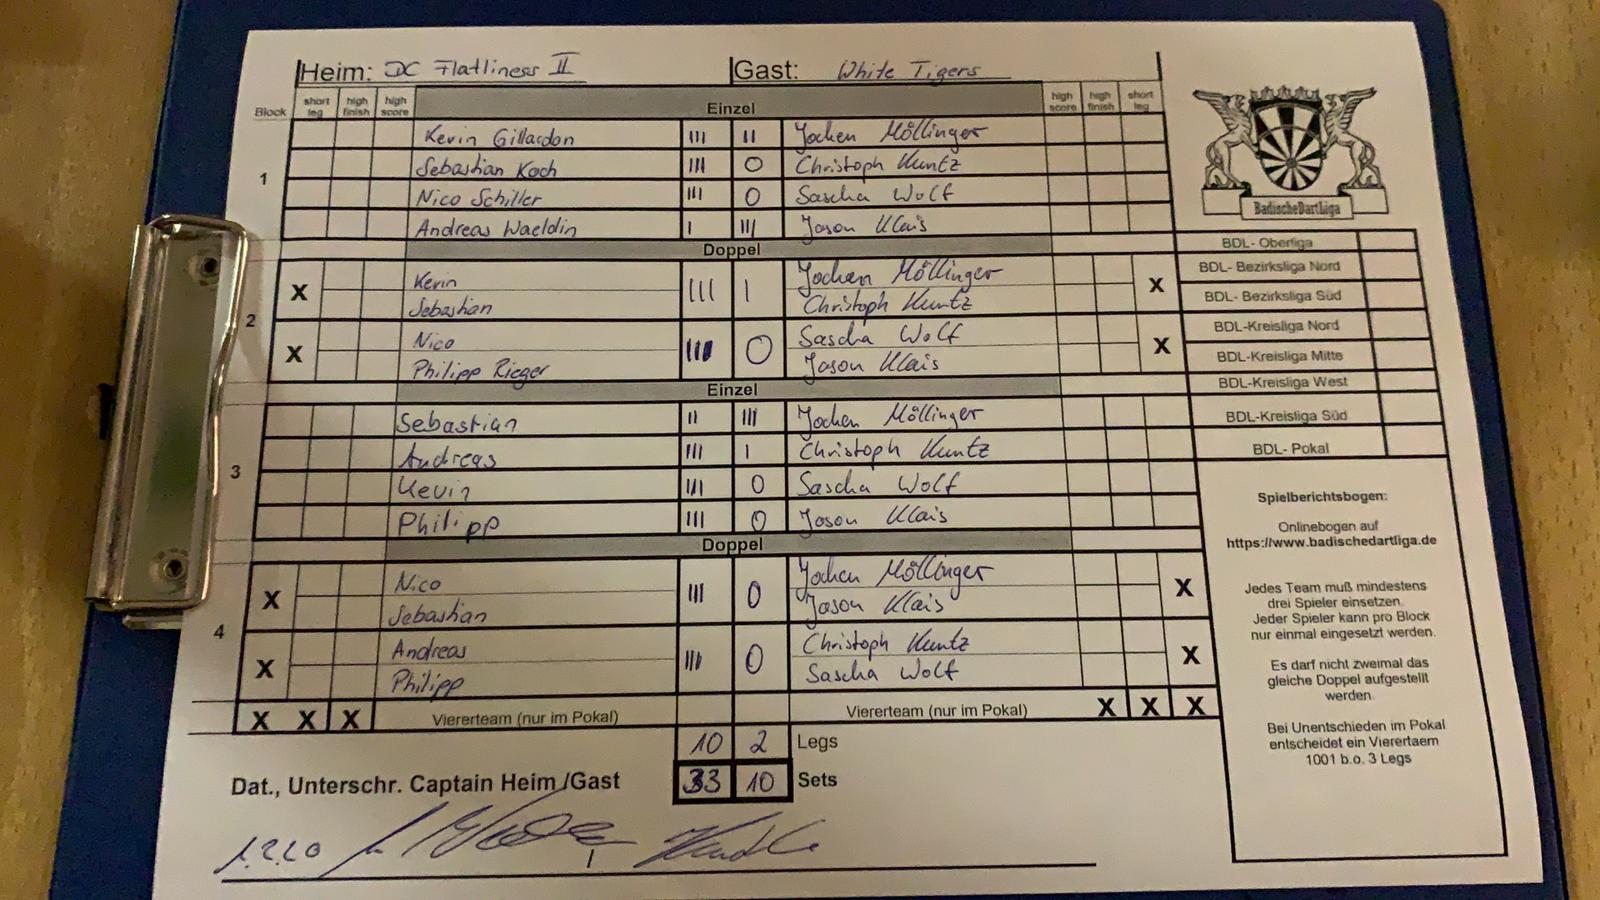 Heim: DC Flatliness II Gast: White Tigers
Block short leg high finish high score Einzel high score high finish short leg
1
Kevin Gillardon III II Jochen Möllinger
Sebastian Koch III 0 Christoph Kuntz
Nico Schiller III 0 Sascha Wolf
Andreas Waeldin I III Jason Klais
Doppel
2
X Kevin III I Jochen Möllinger X
Sebastian Christoph Kuntz
X Nico III 0 Sascha Wolf X
Philipp Rieger Jason Klais
Einzel
3
Sebastian II III Jochen Möllinger
Andreas III I Christoph Kuntz
Kevin III 0 Sascha Wolf
Philipp III 0 Jason Klais
Doppel
4
X Nico III 0 Jochen Möllinger X
Sebastian Jason Klais
X Andreas III 0 Christoph Kuntz X
Philipp Sascha Wolf
X X X Viererteam (nur im Pokal) Viererteam (nur im Pokal) X X X
10 2 Legs
Dat., Unterschr. Captain Heim /Gast 33 10 Sets
1.2.20
BadischeDartLiga
BDL- Oberliga
BDL- Bezirksliga Nord
BDL- Bezirksliga Süd
BDL-Kreisliga Nord
BDL-Kreisliga Mitte
BDL-Kreisliga West
BDL-Kreisliga Süd
BDL- Pokal
Spielberichtsbogen:
Onlinebogen auf
https://www.badischedartliga.de
Jedes Team muß mindestens
drei Spieler einsetzen.
Jeder Spieler kann pro Block
nur einmal eingesetzt werden.
Es darf nicht zweimal das
gleiche Doppel aufgestellt
werden.
Bei Unentschieden im Pokal
entscheidet ein Vierertaem
1001 b.o. 3 Legs